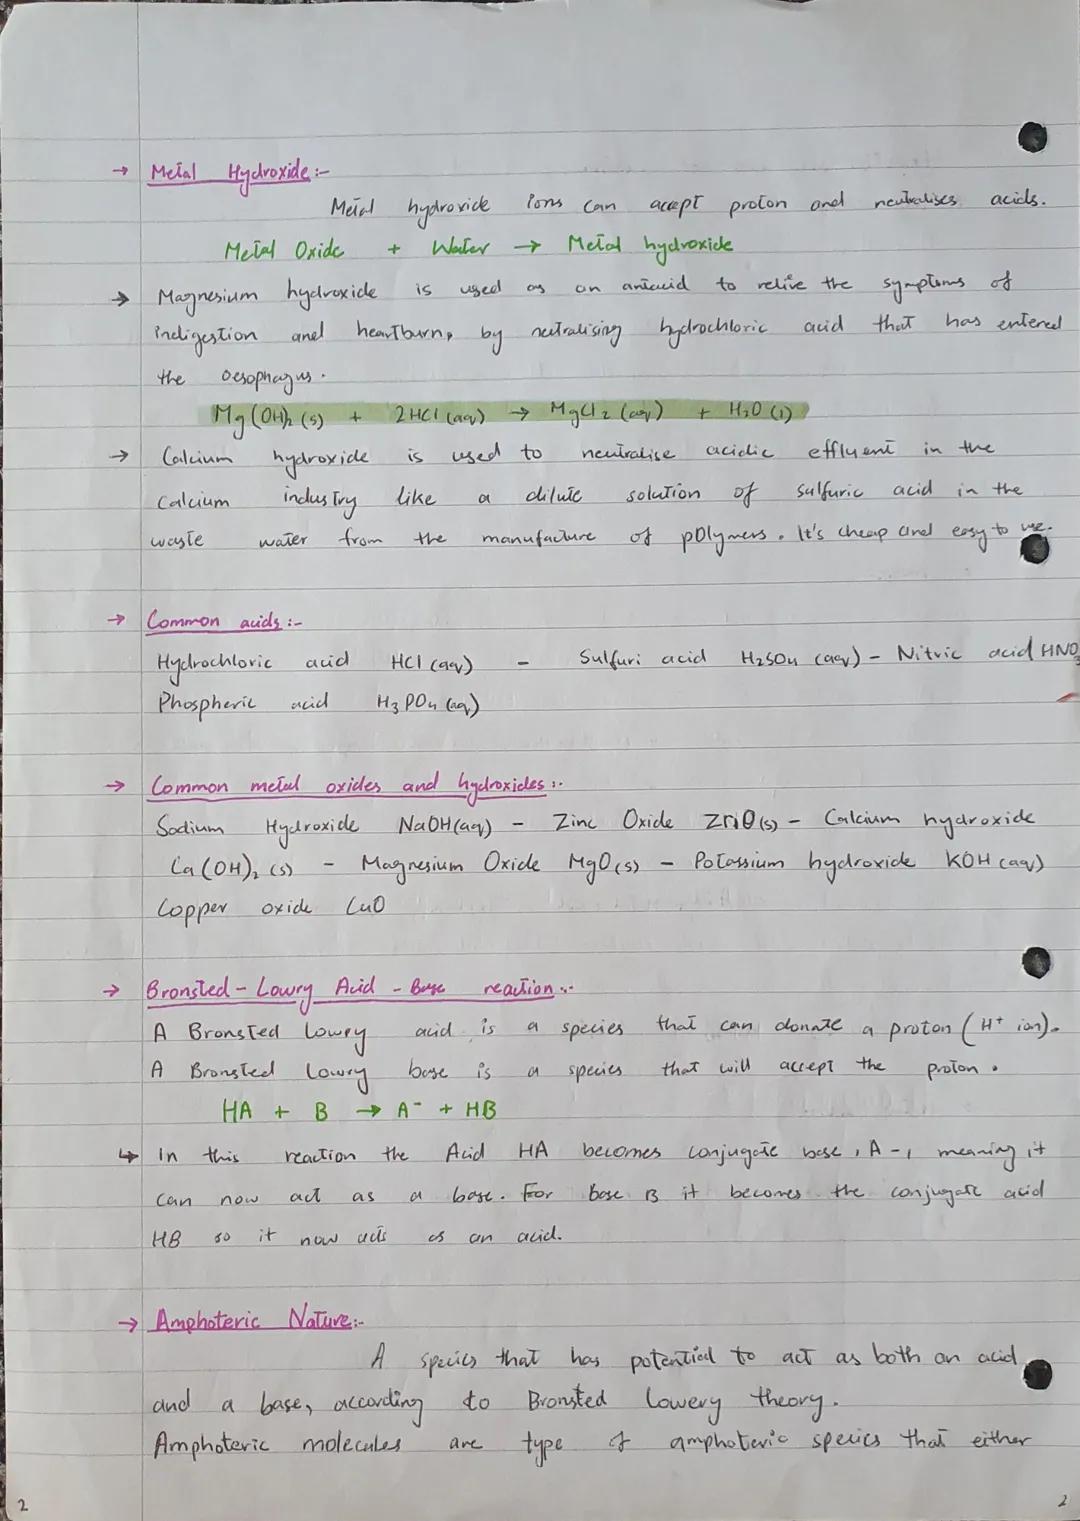 → Metal Hydroxide:-
Metal hydroxide ions can accept proton and neutralises acids.
Metal Oxide + Water → Metal hydroxide
→ Magnesium hydroxide is used as an antacid to relive the symptoms of
indigestion and heartburn, by neutralising hydrochloric acid that has entered
the oesophagus.
Mg(OH)₂ (s) + 2HCl (aq) → MgCl₂ (aq) + H₂O (l)
→ Calcium hydroxide is used to neutralise acidic effluent in the
Calcium industry like a dilute solution of sulfuric acid in the
waste water from the manufacture of polymers. It's cheap and easy to use.
→ Common acids:-
Hydrochloric acid HCl (aq) - Sulfuri acid H₂SO₄ (aq) - Nitric acid HNO₃
Phospheric acid H₃PO₄ (aq)
→ Common metal oxides and hydroxides:-
Sodium Hydroxide NaOH(aq) - Zinc Oxide ZnO(s) - Calcium hydroxide
Ca(OH)₂ (s) - Magnesium Oxide MgO(s) - Potassium hydroxide KOH (aq)
Copper oxide CuO
→ Bronsted-Lowry Acid-Base reaction:-
A Bronsted Lowry acid is a species that can donate a proton (H⁺ ion).
A Bronsted Lowry base is a species that will accept the proton.
HA + B → A⁻ + HB
↳ In this reaction the Acid HA becomes conjugate base, A-, meaning it
can now act as a base. For base B it becomes the conjugate acid
HB so it now acts as an acid.
→ Amphoteric Nature:-
A species that has potential to act as both an acid
and a base, according to Bronsted Lowery theory.
Amphoteric molecules are type of amphoteric species that either
2 2